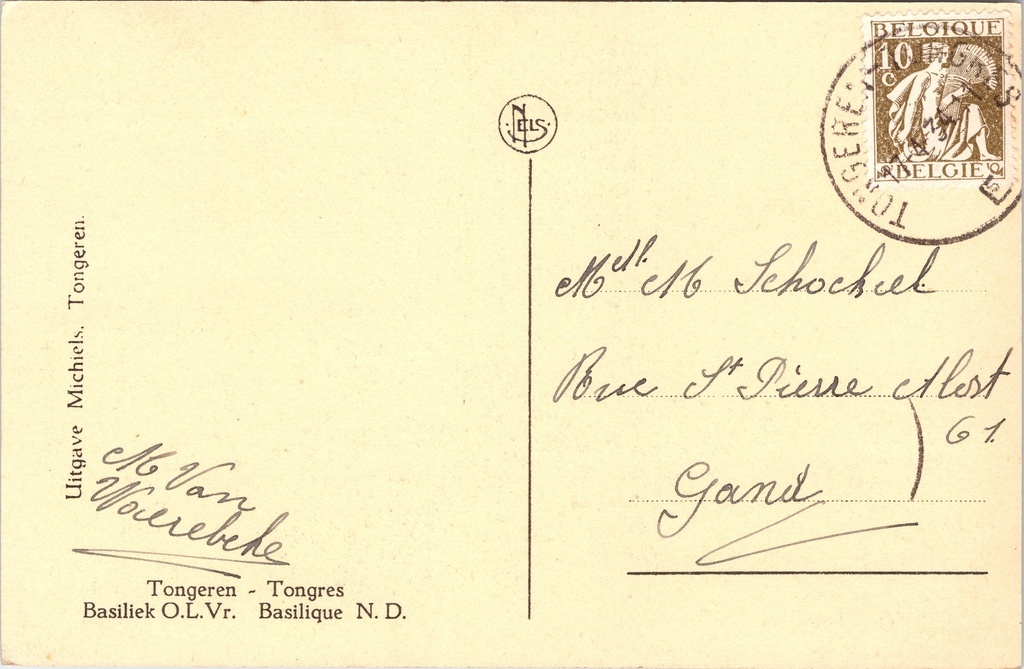 BELGIQUE
10
C
BELGIË
TONGEREN TONGRES
NELS
Mlle. M Schockeel
Rue St Pierre Alost
61.
Gand
Uitgave Michiels. Tongeren.
M Van
Waerebeke
Tongeren - Tongres
Basiliek O.L.Vr. Basilique N. D.